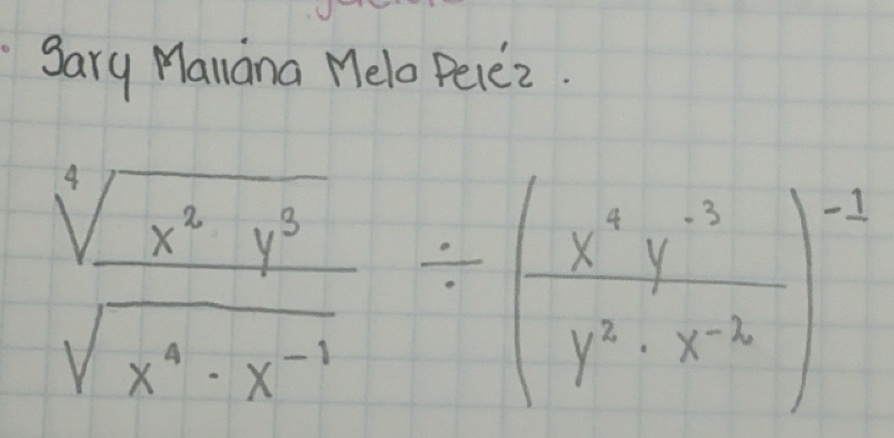 Sary Maiiána Melo Peréz.
⁴√(x² y³) / √(x⁴ · x⁻¹) ÷ (x⁴ y⁻³ / y² · x⁻²)⁻¹